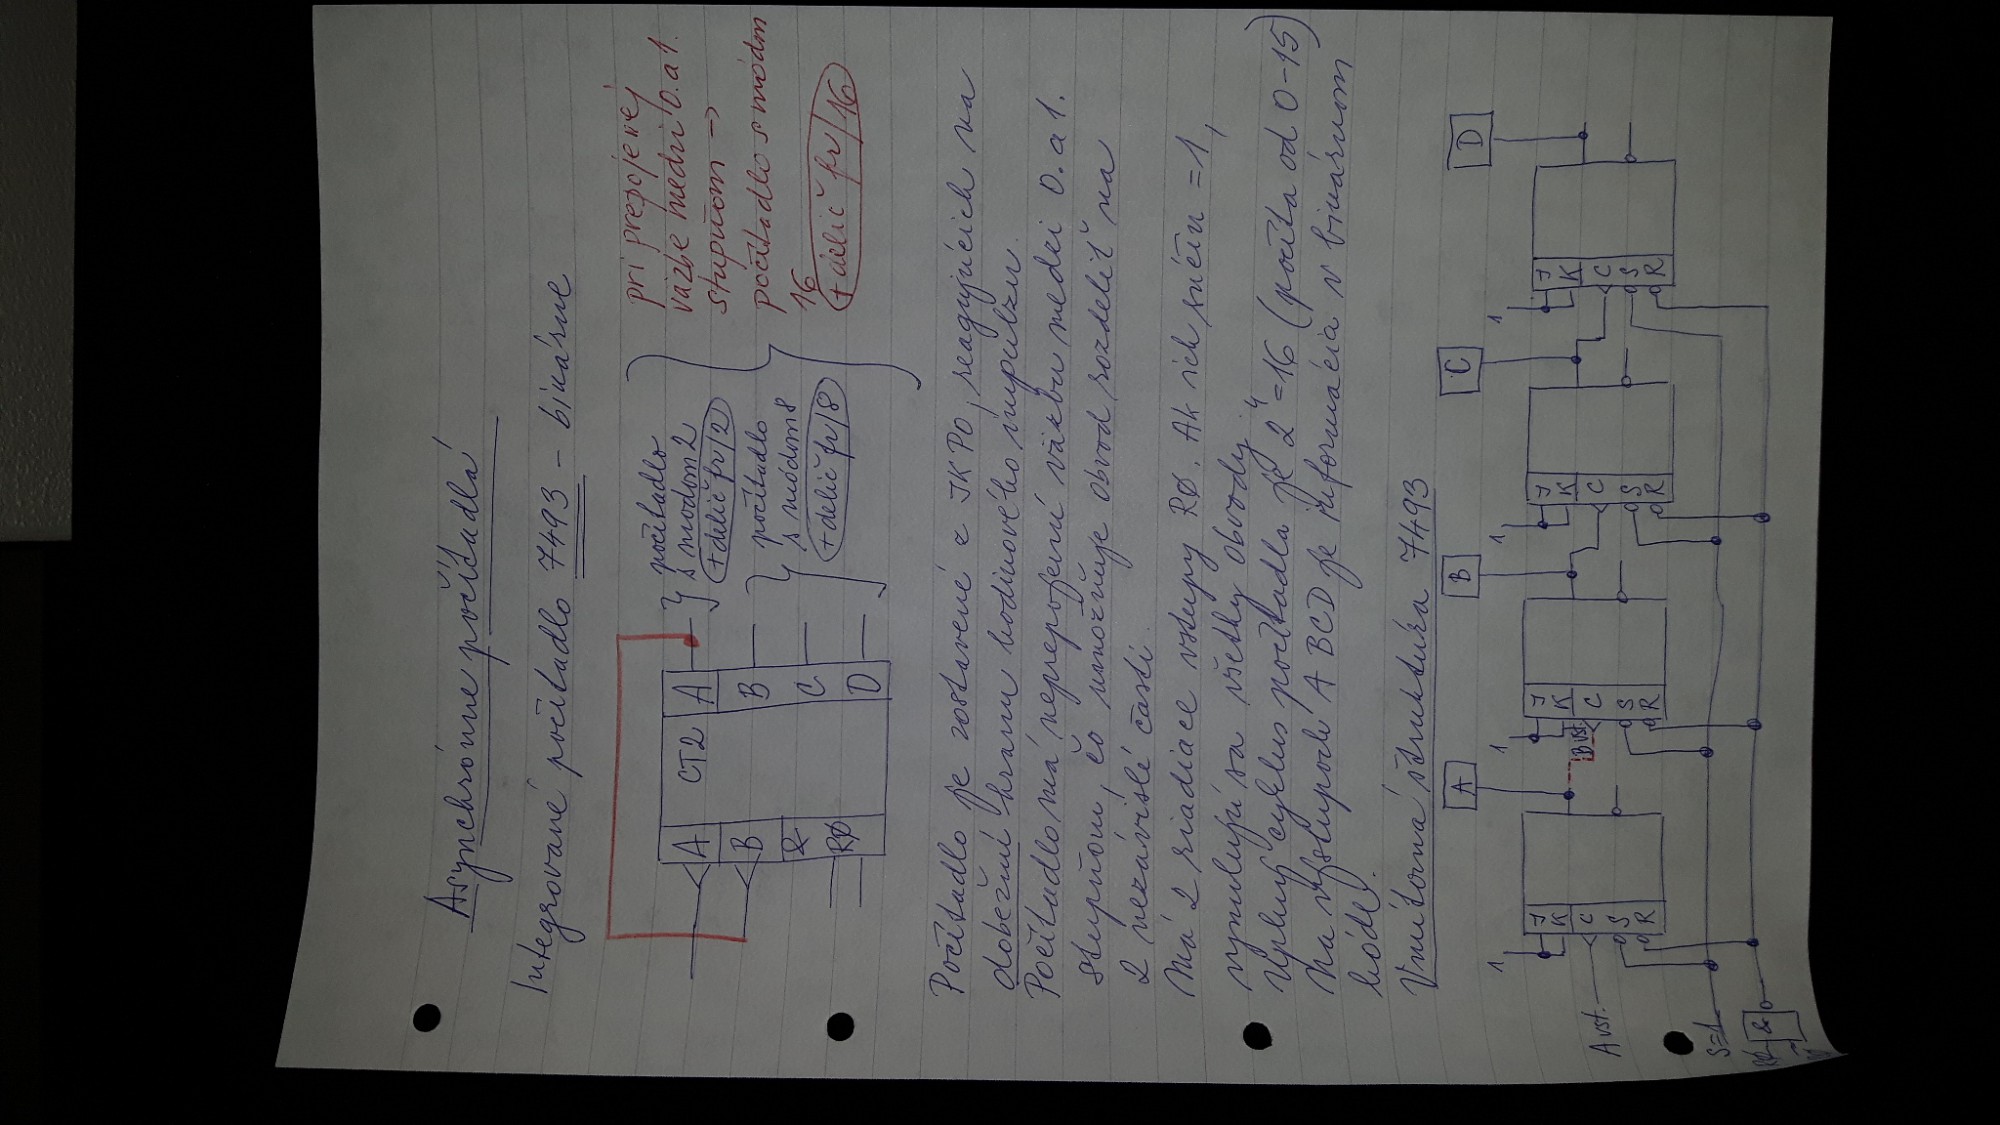 Asynchrónne počítadlá
Integrované počítadlo 7493 - binárne
A CT2 A
B B
& C
RØ D
počítadlo
s modom 2
+ delič fr/2
počítadlo
s módom 8
+ delič fr/8
pri prepojenej
väzbe medzi 0. a 1.
stupňom →
počítadlo s módm
16
+ delič fr/16
Počítadlo je zostavené z JK PO, reagujúcich na
dobežnú hranu hodinového impulzu.
Počítadlo má neprepojenú väzbu medzi 0. a 1.
stupňom, čo umožňuje obvod rozdeliť na
2 nezávislé časti.
Má 2 riadiace vstupy RØ. Ak ich súčin = 1,
vynulujú sa všetky obvody.
Úplný cyklus počítadla je 2⁴ = 16 (počíta od 0-15)
Na výstupoch A BCD je informácia v binárnom
kóde.
Vnútorná štruktúra 7493
A B C D
1 1 1 1
J J J J
K K K K
A vst. C B vst. C C C
S S S S
R R R R
S=1
RØ &